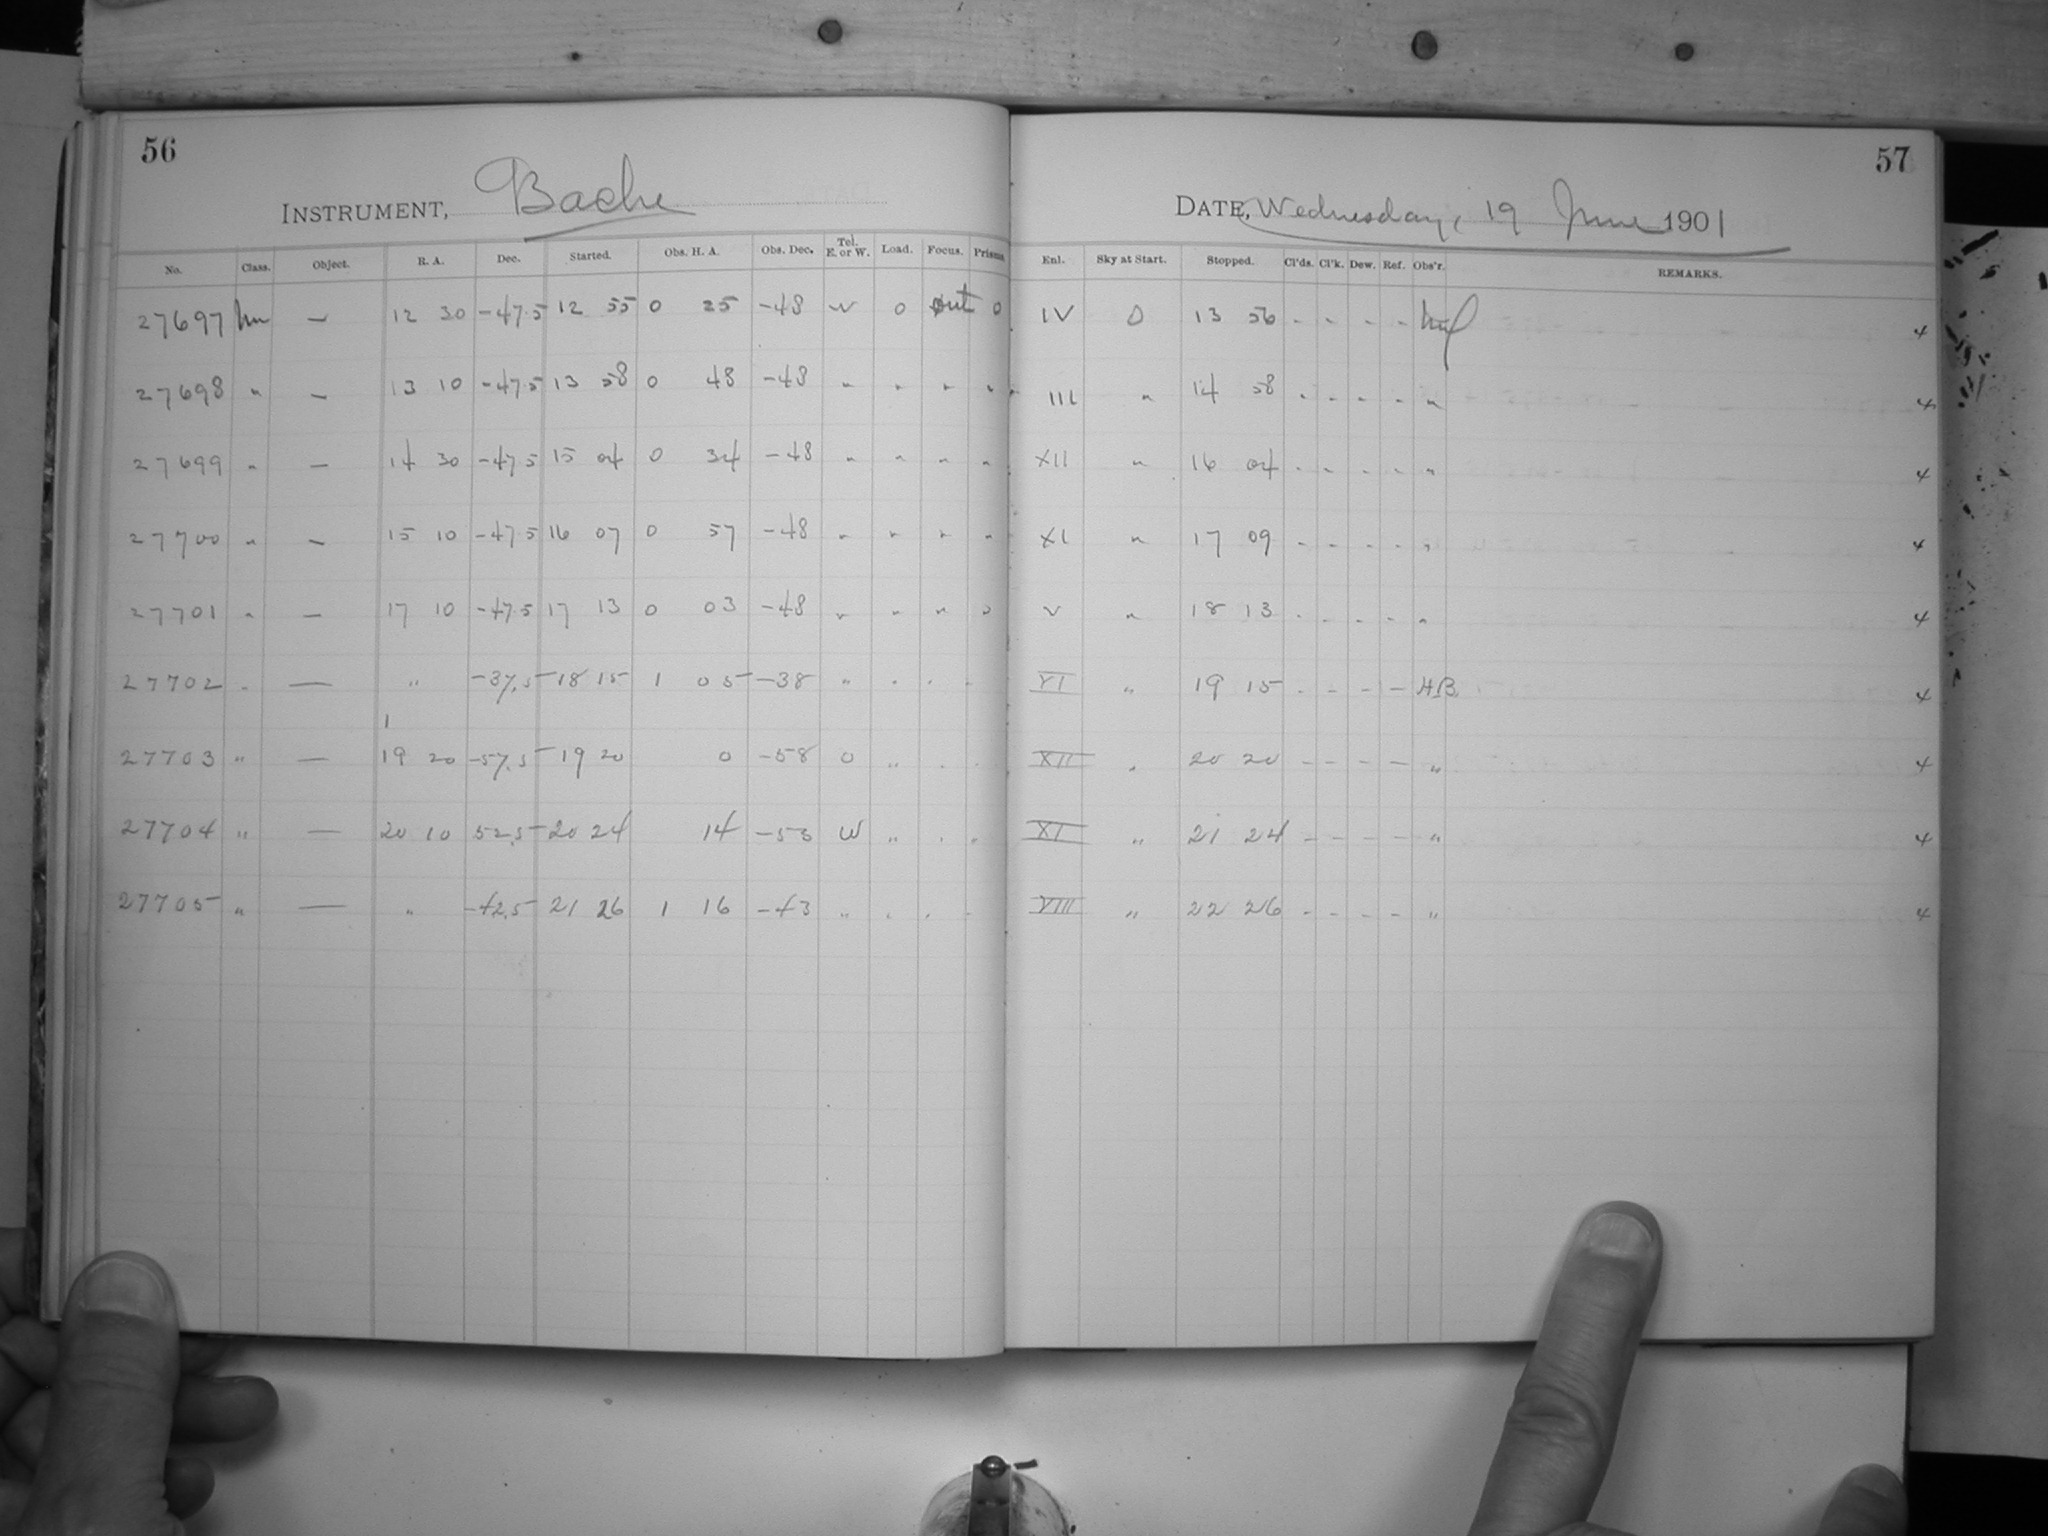 56
INSTRUMENT, Bache
No. Class. Object. R. A. Dec. Started. Obs. H. A. Obs. Dec. Tel. E. or W. Load. Focus. Prisms
27697 — 12 30 -47.5 12 55 0 25 -48 W 0 out 0
27698 " — 13 10 -47.5 13 58 0 48 -48 " " " "
27699 " — 14 30 -47.5 15 04 0 34 -48 " " " "
27700 " — 15 10 -47.5 16 07 0 57 -48 " " " "
27701 " — 17 10 -47.5 17 13 0 03 -48 " " " "
27702 " — " -37.5 18 15 1 05 -38 " " " "
27703 " — 19 20 -57.5 19 20 0 -58 0 " " "
27704 " — 20 10 52.5 20 24 14 -53 W " " "
27705 " — " -42.5 21 26 1 16 -43 " " " "
57
DATE, Wednesday, 19 June 1901
Enl. Sky at Start. Stopped. Cl'ds. Cl'k. Dew. Ref. Obs'r. REMARKS.
IV 0 13 56 - - - - 4
III " 14 58 - - - - " 4
XII " 16 04 - - - - " 4
XI " 17 09 - - - - " 4
V " 18 13 - - - - " 4
VI " 19 15 - - - - H.B. 4
XII " 20 20 - - - - " 4
XI " 21 24 - - - - " 4
VIII " 22 26 - - - - " 4